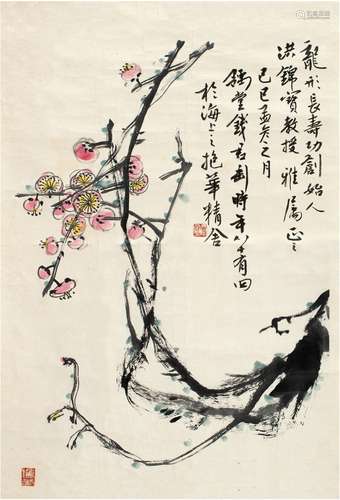 龍形長壽功創始人
洪錦寶教授雅屬正之
己巳孟冬之月
豫堂錢君匋時年八十有四
於海上之抱華精舍